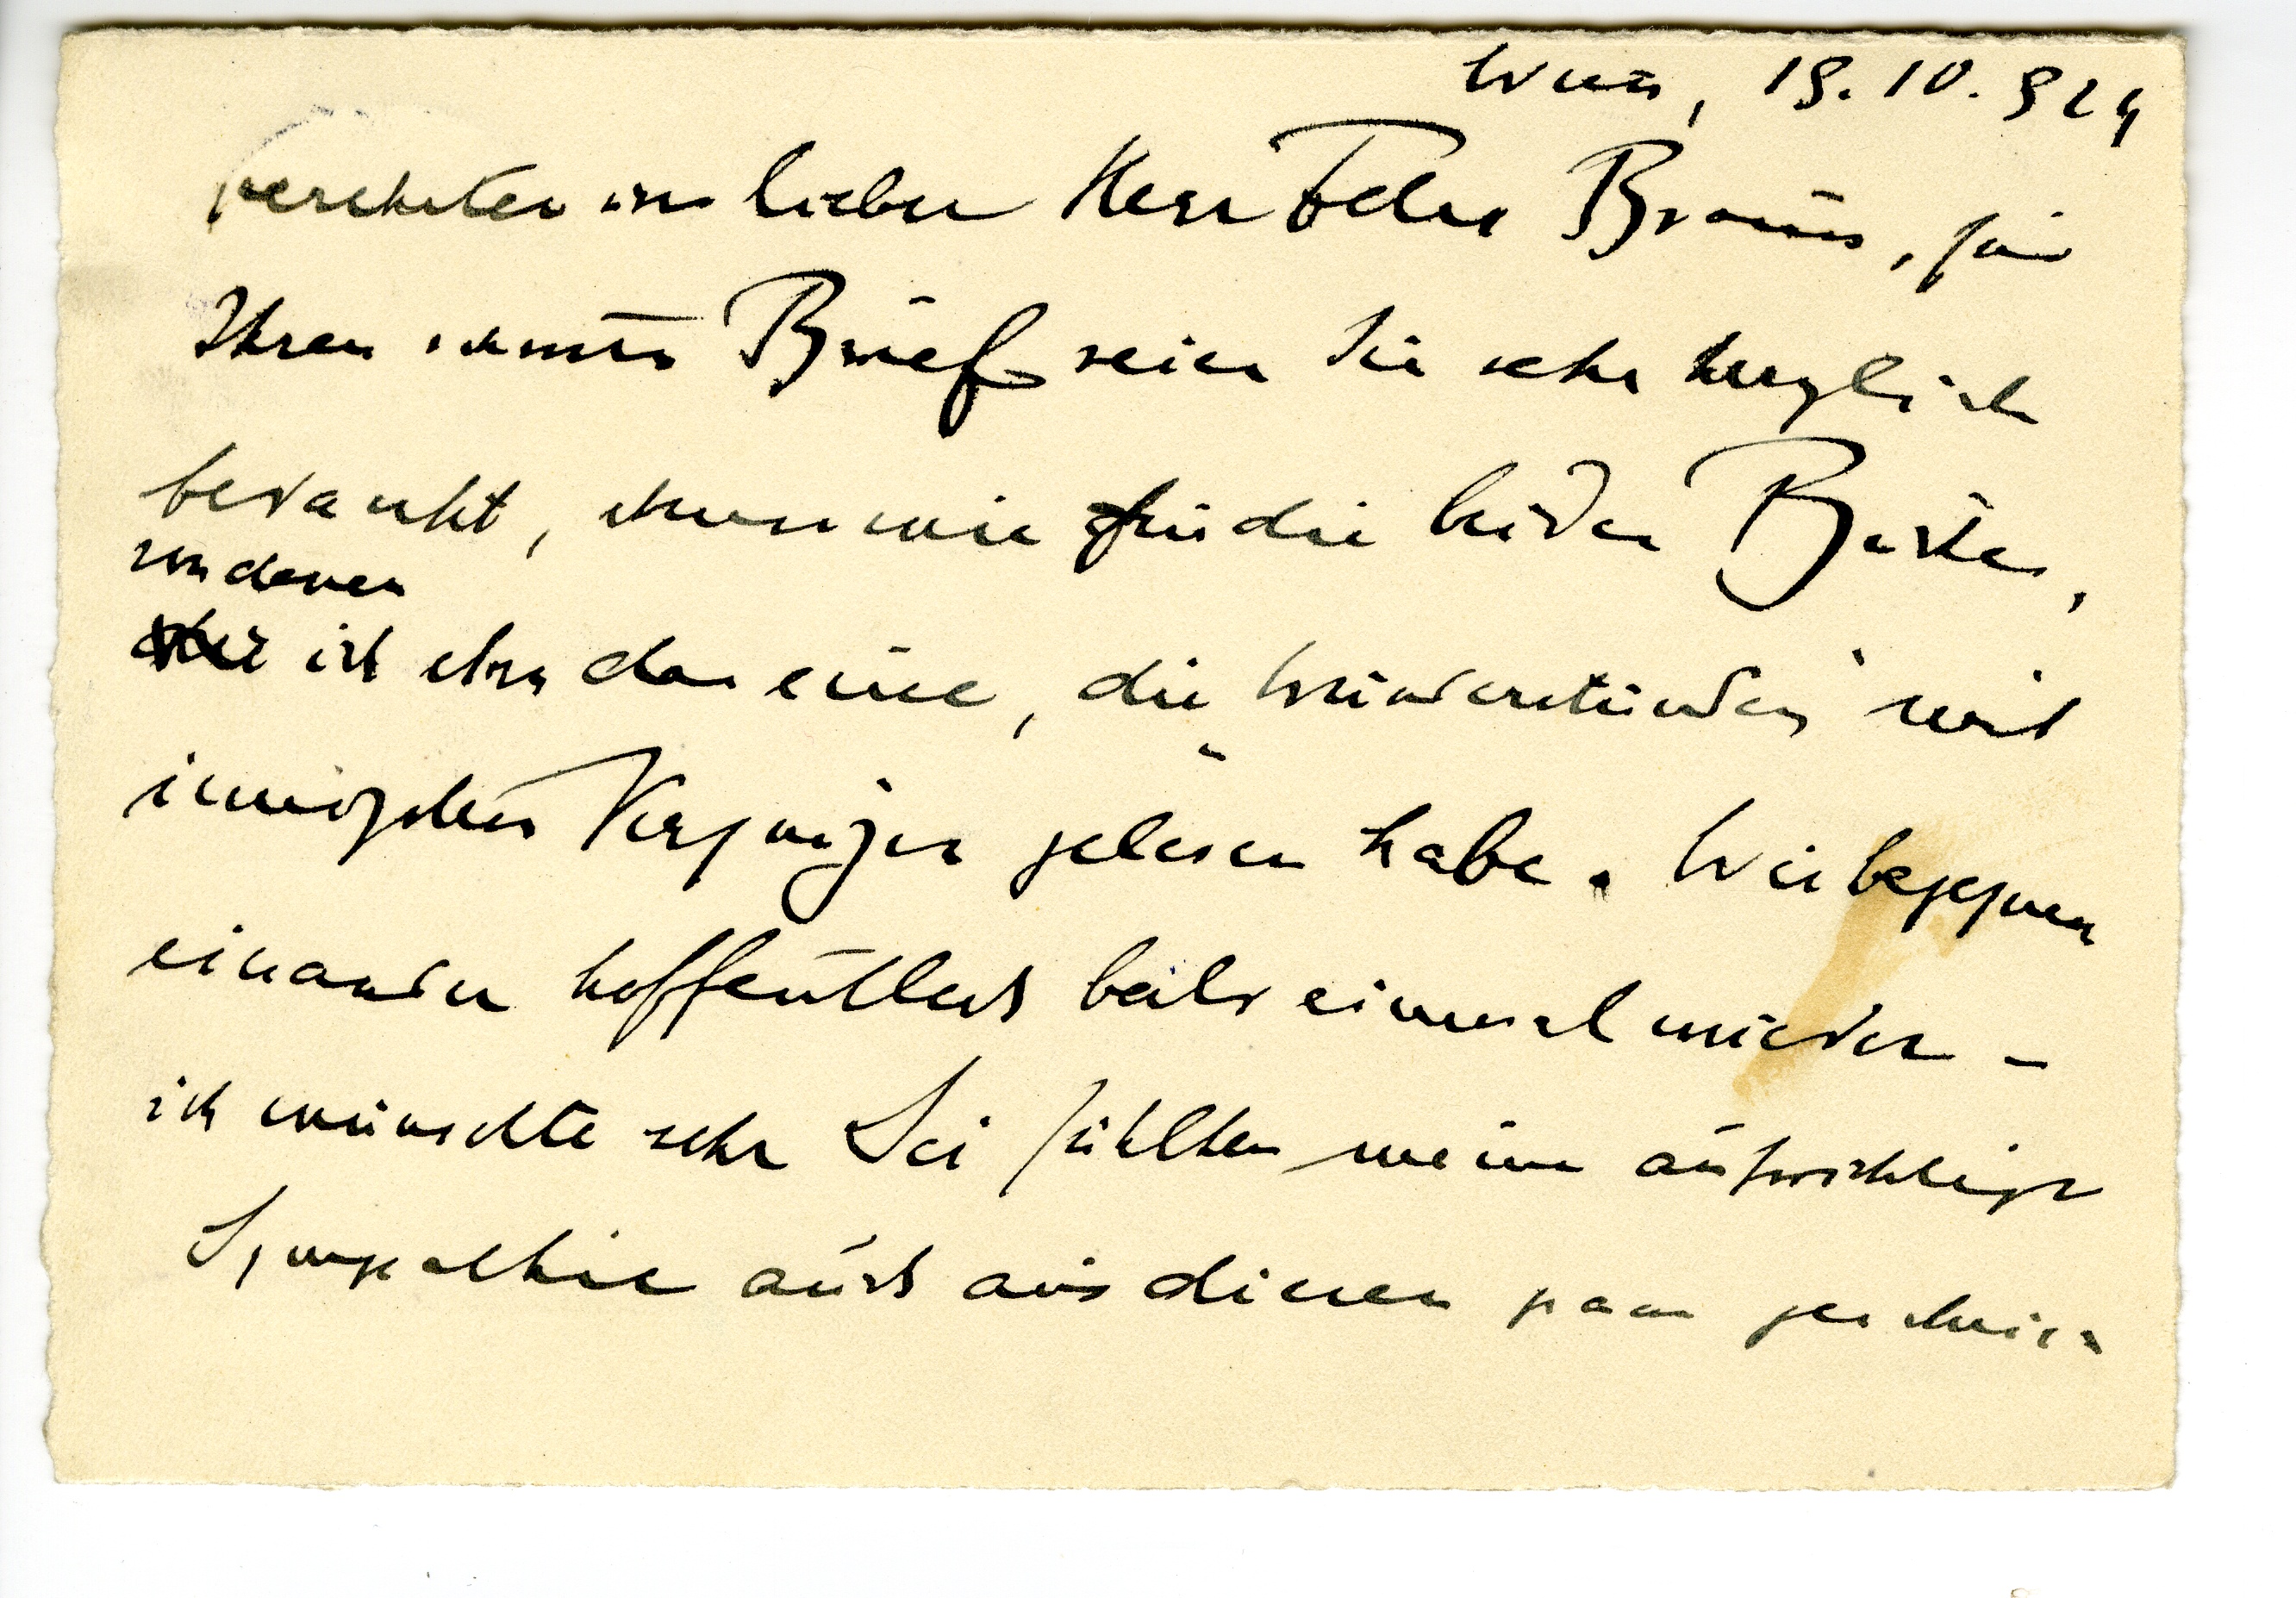 Wien, 19.10.924
verehrter und lieber Herr Felix Braun, für
Ihren schönen Brief seien Sie sehr herzlich
bedankt, ebenso wie für die beiden Bücher,
von denen
ich eben das eine, die Wunderstunden mit
innigstem Vergnügen gelesen habe. Wir begegnen
einander hoffentlich bald einmal wieder –
ich wünschte sehr Sie fühlten meine aufrichtige
Sympathie auch aus diesen paar